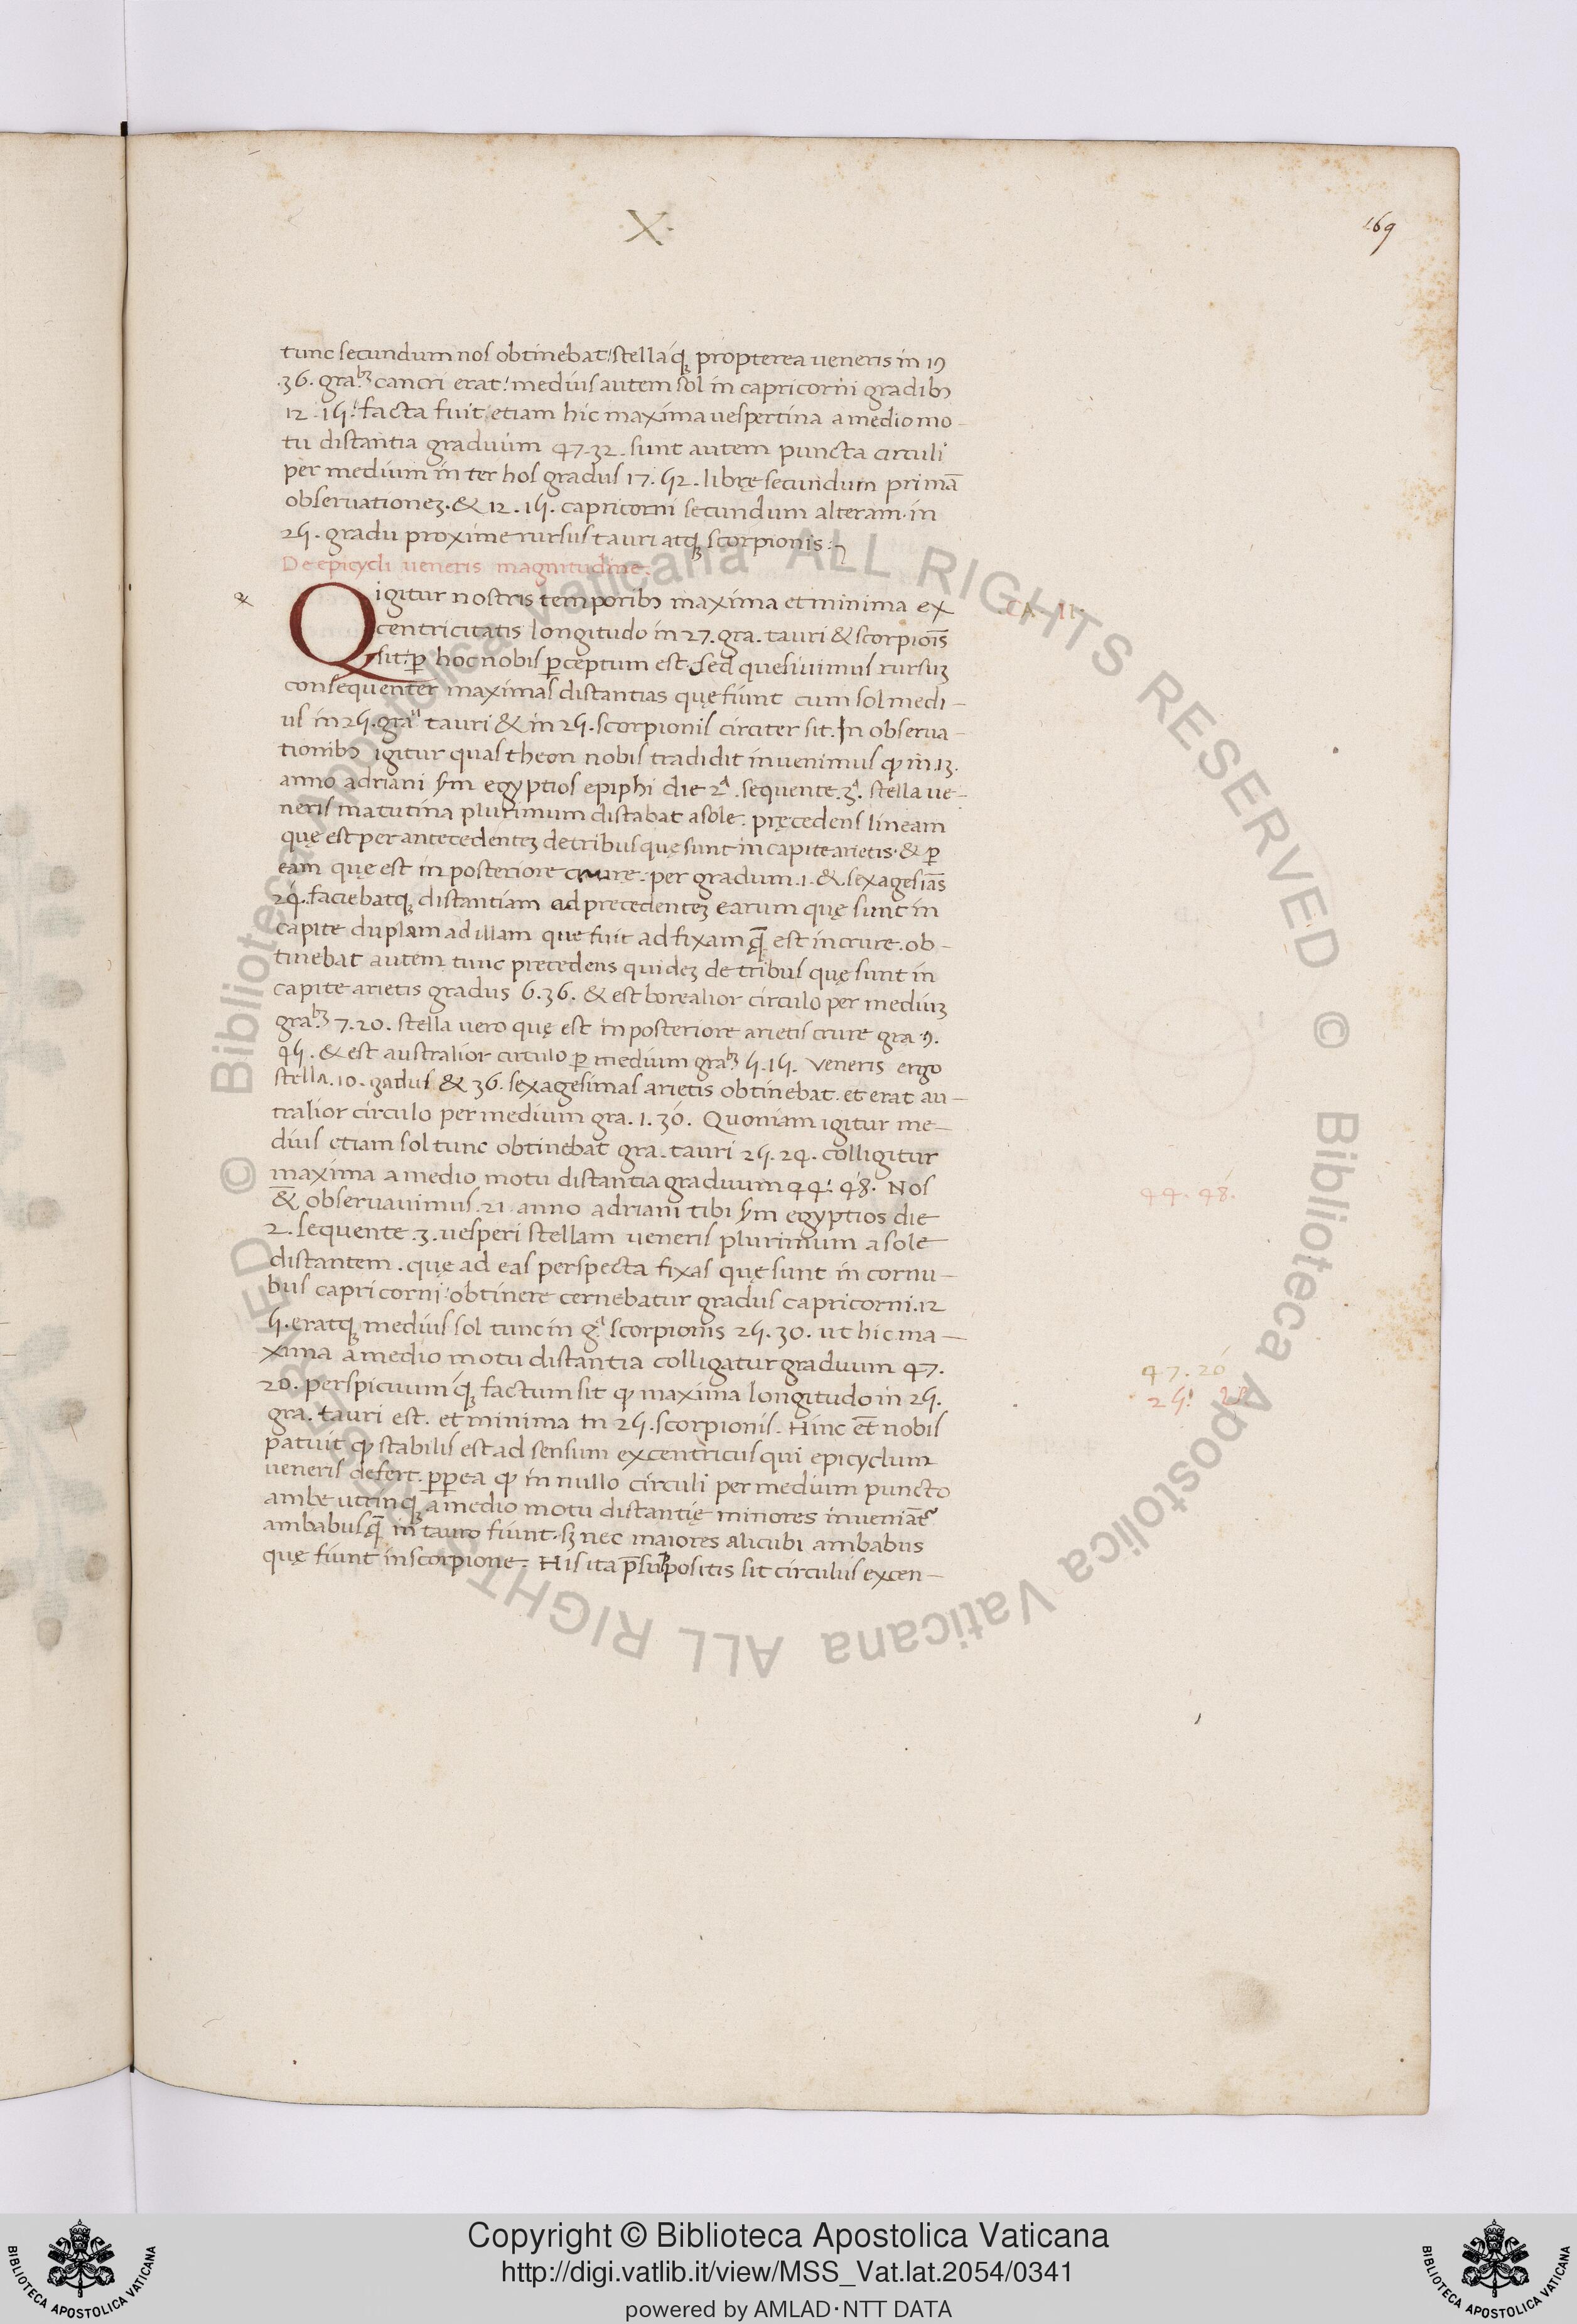 X·
169
tunc secundum nos obtinebat: stellaq́ꝫ propterea ueneris in 19
.36. gra.bꝫ cancri erat: medius autem sol in capricorni gradibꝫ
12.15: facta fuit etiam hic maxima uespertina a medio mo-
tu distantia graduum 47.32. sunt autem puncta circuli
per medium inter hos gradus 17.52. librę secundum primā
obseruationeꝫ. & 12.15. capricorni secundum alteram. in
25. gradu proxime rursus tauri atqꝫ scorpionis:
De epicycli ueneris magnitudine.
CA. II.
Q igitur nostris temporibꝫ maxima et minima ex
centricitatis longitudo in 27. gra. tauri & scorpiōis
sit: ꝑ hoc nobis ꝑceptum est. Sed quesiuimus rursuꝫ
consequenter maximas distantias quę fiunt cum sol medi-
us in 25. gra. tauri & in 25. scorpionis circiter sit. In obserua-
tionibꝫ igitur quas theon nobis tradidit inuenimus ꝙ in .13.
anno adriani sm egyptios epiphi die 2.ª sequente .3.ª stella ue-
neris matutina plurimum distabat a sole. pręcedens lineam
quę est per antecedenteꝫ de tribus quę sunt in capite arietis. & ꝑ
eam quę est in posteriore crure. per gradum .1. & sexagesiās
24. faciebatqꝫ distantiam ad precedenteꝫ earum quę sunt in
capite duplam ad illam que fuit ad fixam q̄ est in crure. ob-
tinebat autem tunc precedens quideꝫ de tribus quę sunt in
capite arietis gradus 6.36. & est borealior circulo per mediuꝫ
gra.bꝫ 7.20. stella uero quę est in posteriore arietis crure gra. 9.
45. & est australior circulo ꝑ medium gra.bꝫ 5.15. Veneris ergo
stella .10. gadus & 36. sexagesimas arietis obtinebat. et erat au-
tralior circulo per medium gra. 1.30. Quoniam igitur me-
dius etiam sol tunc obtinebat gra. tauri 25.24. colligitur
maxima a medio motu distantia graduum 44.48. Nos
44.48.
&̄ obseruauimus .21. anno adriani tibi sm egyptios die
2. sequente .3. uesperi stellam ueneris plurimum a sole
distantem. quę ad eas perspecta fixas quę sunt in cornu-
bus capricorni: obtinere cernebatur gradus capricorni .12
5. eratqꝫ medius sol tunc in g.ª scorpionis 25.30. ut hic ma-
xima a medio motu distantia colligatur graduum 47.
47.20
20. perspicuumq́ꝫ factum sit ꝙ maxima longitudo in 25.
gra. tauri est. et minima in 25. scorpionis. Hinc et̄ nobis
patuit ꝙ stabilis est ad sensum excentricus qui epicyclum
ueneris defert. ꝑꝑea ꝙ in nullo circuli per medium puncto
ambe utrinqꝫ a medio motu distantię minores inueniāt᷑
ambabus q̄ in tauro fiunt. sꝫ nec maiores alicubi ambabus
quę fiunt in scorpione. His ita p̄suppositis sit circulus excen-
© Biblioteca Apostolica Vaticana ALL RIGHTS RESERVED © Biblioteca Apostolica Vaticana ALL RIGHTS RESERVED
Copyright © Biblioteca Apostolica Vaticana
http://digi.vatlib.it/view/MSS_Vat.lat.2054/0341
powered by AMLAD·NTT DATA
BIBLIOTECA APOSTOLICA VATICANA
BIBLIOTECA APOSTOLICA VATICANA